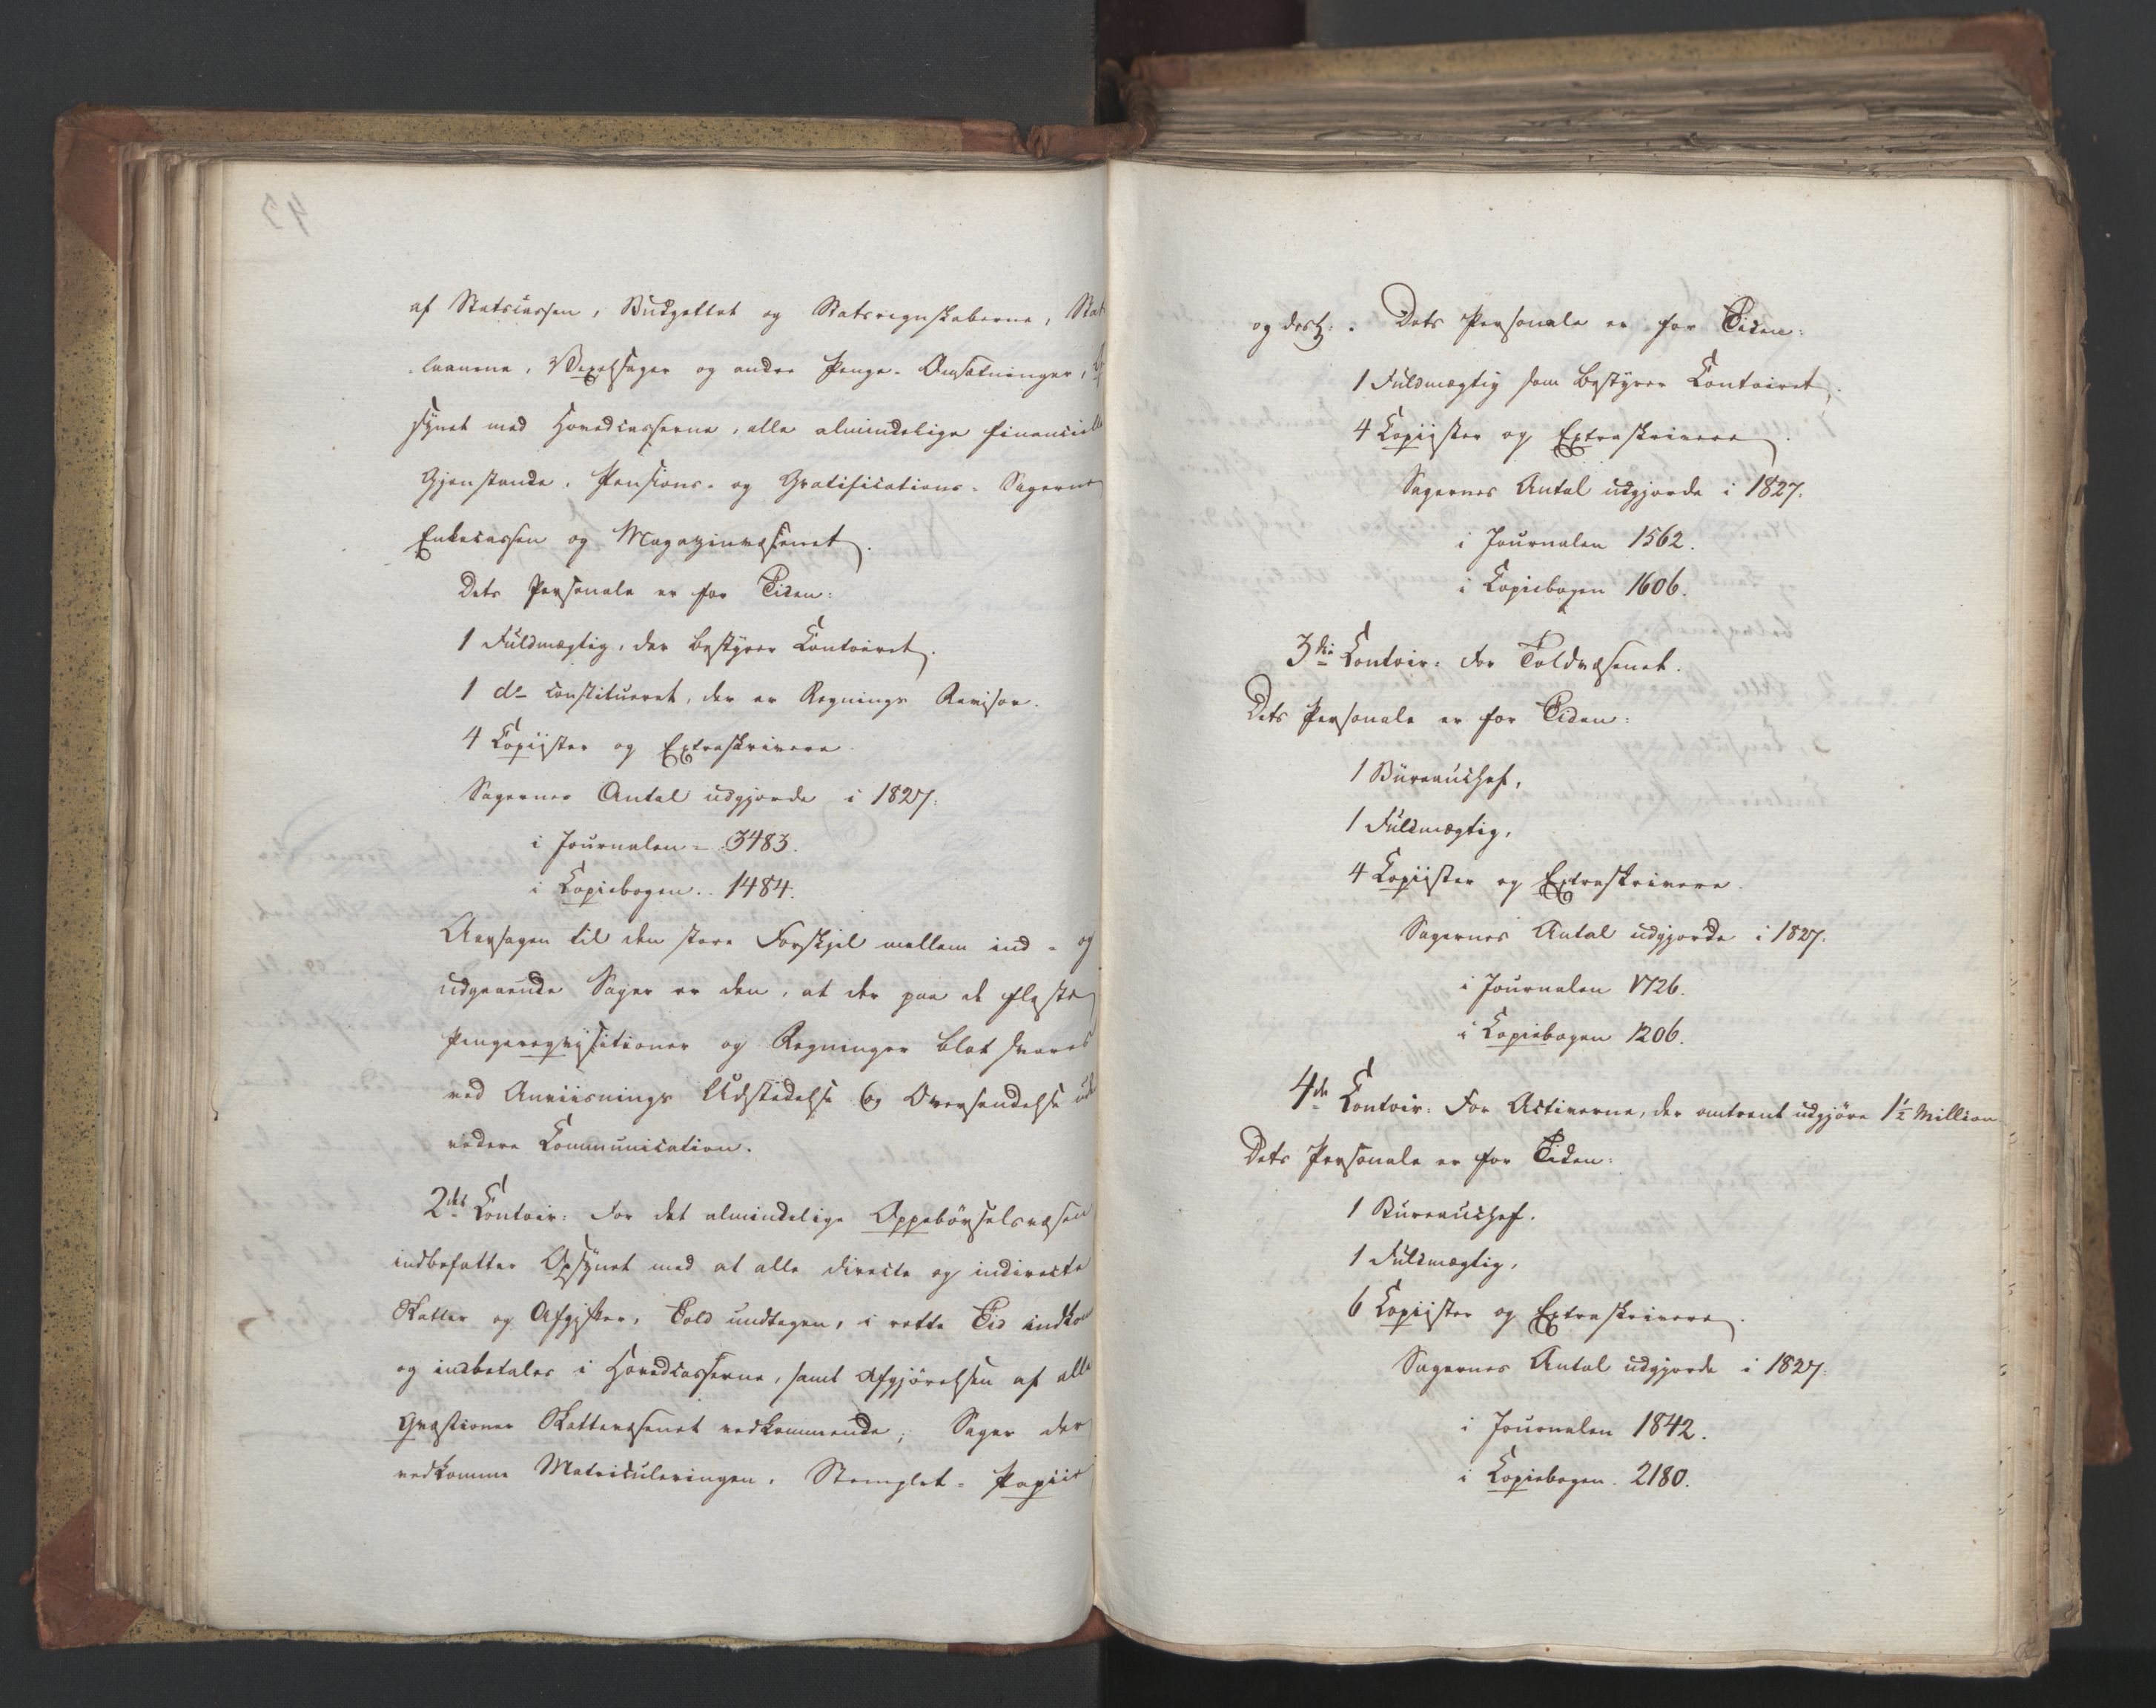 af Statscassen, Budgettet og Statsregnskaberne, Stats
laanene, Vexelsager og andre Penge-Omsætninger,
synet med Hovedcasserne, alle almindelige financielle
Gjenstande, Pensions- og Gratifications-Sagerne
Enkecassen og Magazinvæsenet.
Dets Personale er for Tiden:
1 Fuldmægtig, der bestyrer Contoiret.
1 do constitueret, der er Regnings Revisor.
4 Copiister og Extraskrivere.
Sagernes Antal udgjorde i 1827:
i Journalen - 3483.
i Copiebogen .. 1484.
Aarsagen til den store Forskjel mellem ind- og
udgaaende Sager er den, at der paa de fleste
Pengereqvisitioner og Regninger blot svares
ved Anviisnings Udstædelse og Oversendelse uden
videre Communication.
2det Contoir: For det almindelige Oppebörselsvæsen
indbefatter Opsynet med at alle directe og indirecte
Skatter og Afgifter, Told undtagen, i rette Tid indkom
og indbetales i Hovedcasserne, samt Afgjörelsen af alle
Qvæstioner Skattevæsenet vedkommende; Sager der
vedkomme Matriculeringen, Stemplet-Papiir
og desl: . Dets Personale er for Tiden:
1 Fuldmægtig som bestyrer Contoiret.
4 Copiister og Extraskrivere.
Sagernes Antal udgjorde i 1827:
i Journalen 1562.
i Copiebogen 1606.
3die Contoir: For Toldvæsenet.
Dets Personale er for Tiden:
1 Büreauchef,
1 Fuldmægtig,
4 Copiister og Extraskrivere.
Sagernes Antal udgjorde i 1827:
i Journalen 1726.
i Copiebogen 1206.
4de Contoir: For Activerne, der omtrent udgjöre 1½ Million
Dets Personale er for Tiden:
1 Bureauchef.
1 Fuldmægtig,
6 Copiister og Extraskrivere.
Sagernes Antal udgjorde i 1827:
i Journalen 1842.
i Copiebogen . 2180.